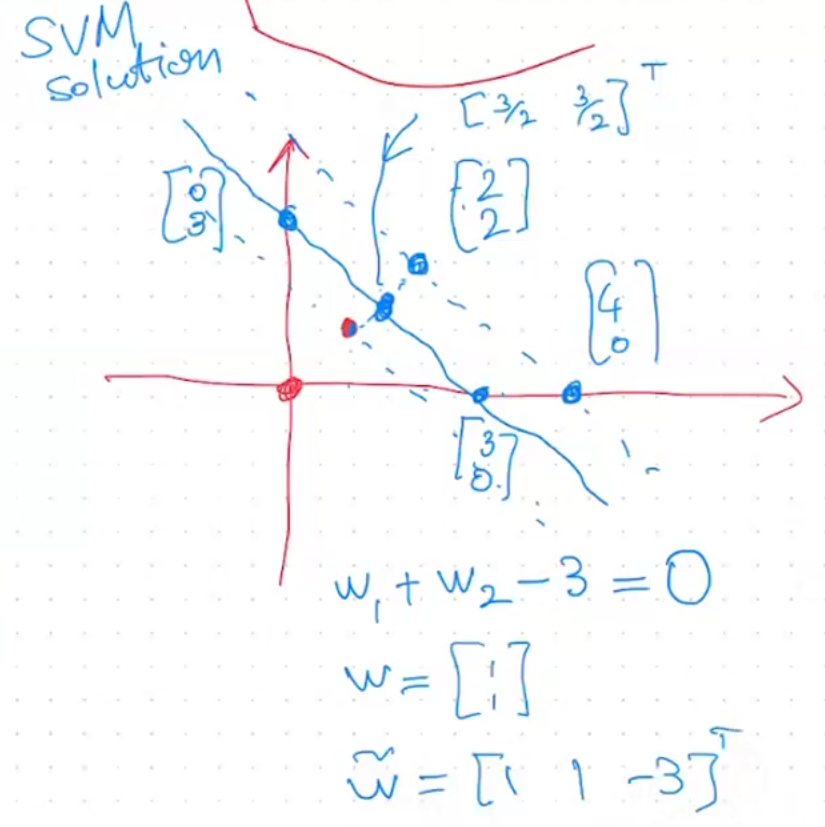 SVM
solution
[3/2 3/2]^T
[0
3]
[2
2]
[4
0]
[3
0]
w₁ + w₂ - 3 = 0
w = [1
1]
w̃ = [1 1 -3]^T